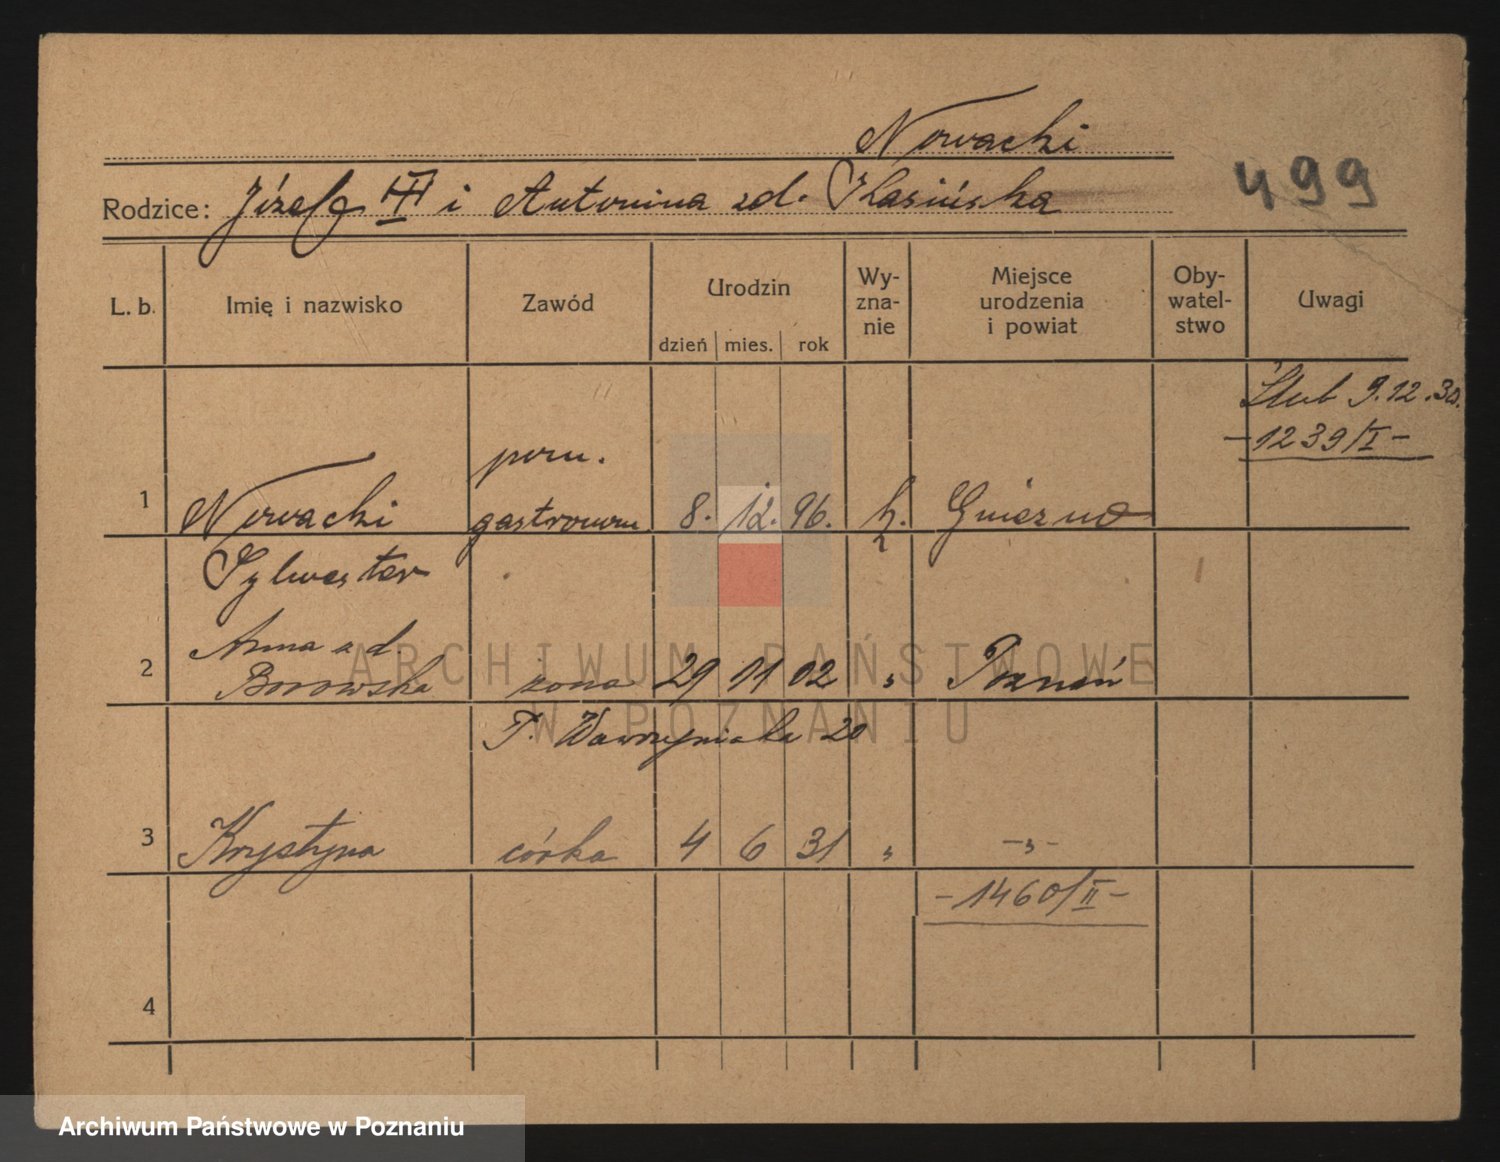 Nowacki
499
Rodzice: Józef III i Antonina zd. Kasińska
L. b. Imię i nazwisko Zawód Urodzin Wy-zna-nie Miejsce urodzenia i powiat Oby-watel-stwo Uwagi
dzień mies. rok
Ślub 9.12.30.
-1239/I-
pom.
1 Nowacki gastronom 8. 12. 96. k. Gniezno
Sylwester
Anna zd.
2 Borowska żona 29 11 02 " Poznań
P. Wawrzyniaka 20
3 Krystyna córka 4 6 31 " -"-
-1460/II-
4
ARCHIWUM PAŃSTWOWE
W POZNANIU
Archiwum Państwowe w Poznaniu